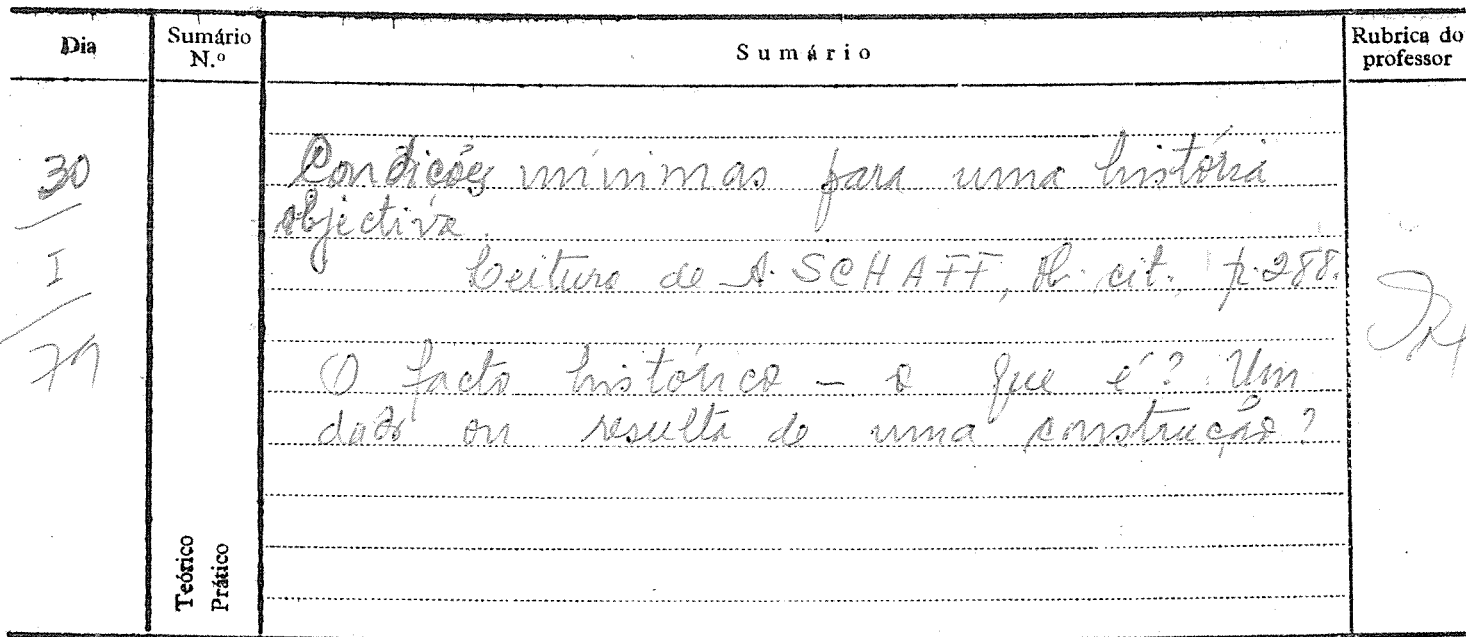 Dia
Sumário N.º
Sumário
Rubrica do professor
30
I
79
Condições mínimas para uma história
objectiva.
Leitura de A. SCHAFF, ob. cit., p. 288.
O facto histórico – o que é? Um
dado ou resulta de uma construção?
Teórico
Prático